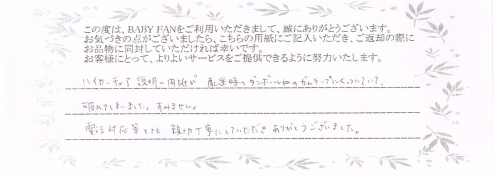 この度は、BABY FANをご利用いただきまして、誠にありがとうございます。
お気づきの点がございましたら、こちらの用紙にご記入いただき、ご返却の際に
お品物に同封していただければ幸いです。
お客様にとって、よりよいサービスをご提供できるように努力いたします。
ハイローチェア 説明の用紙が 配送時のダンボール箱のガムテープにくっついていて、
破れてしまいました。すみません。
電話対応等とても 親切丁寧にしていただき ありがとうございました。